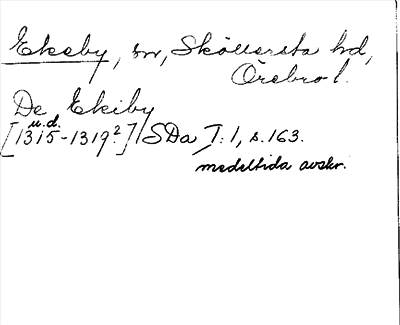 Ekeby, sn, Sköllersta hd,
Örebro l.
De Ekiby
u.d.
[1315-1319?] SDa J: 1, s. 163.
medeltida avskr.